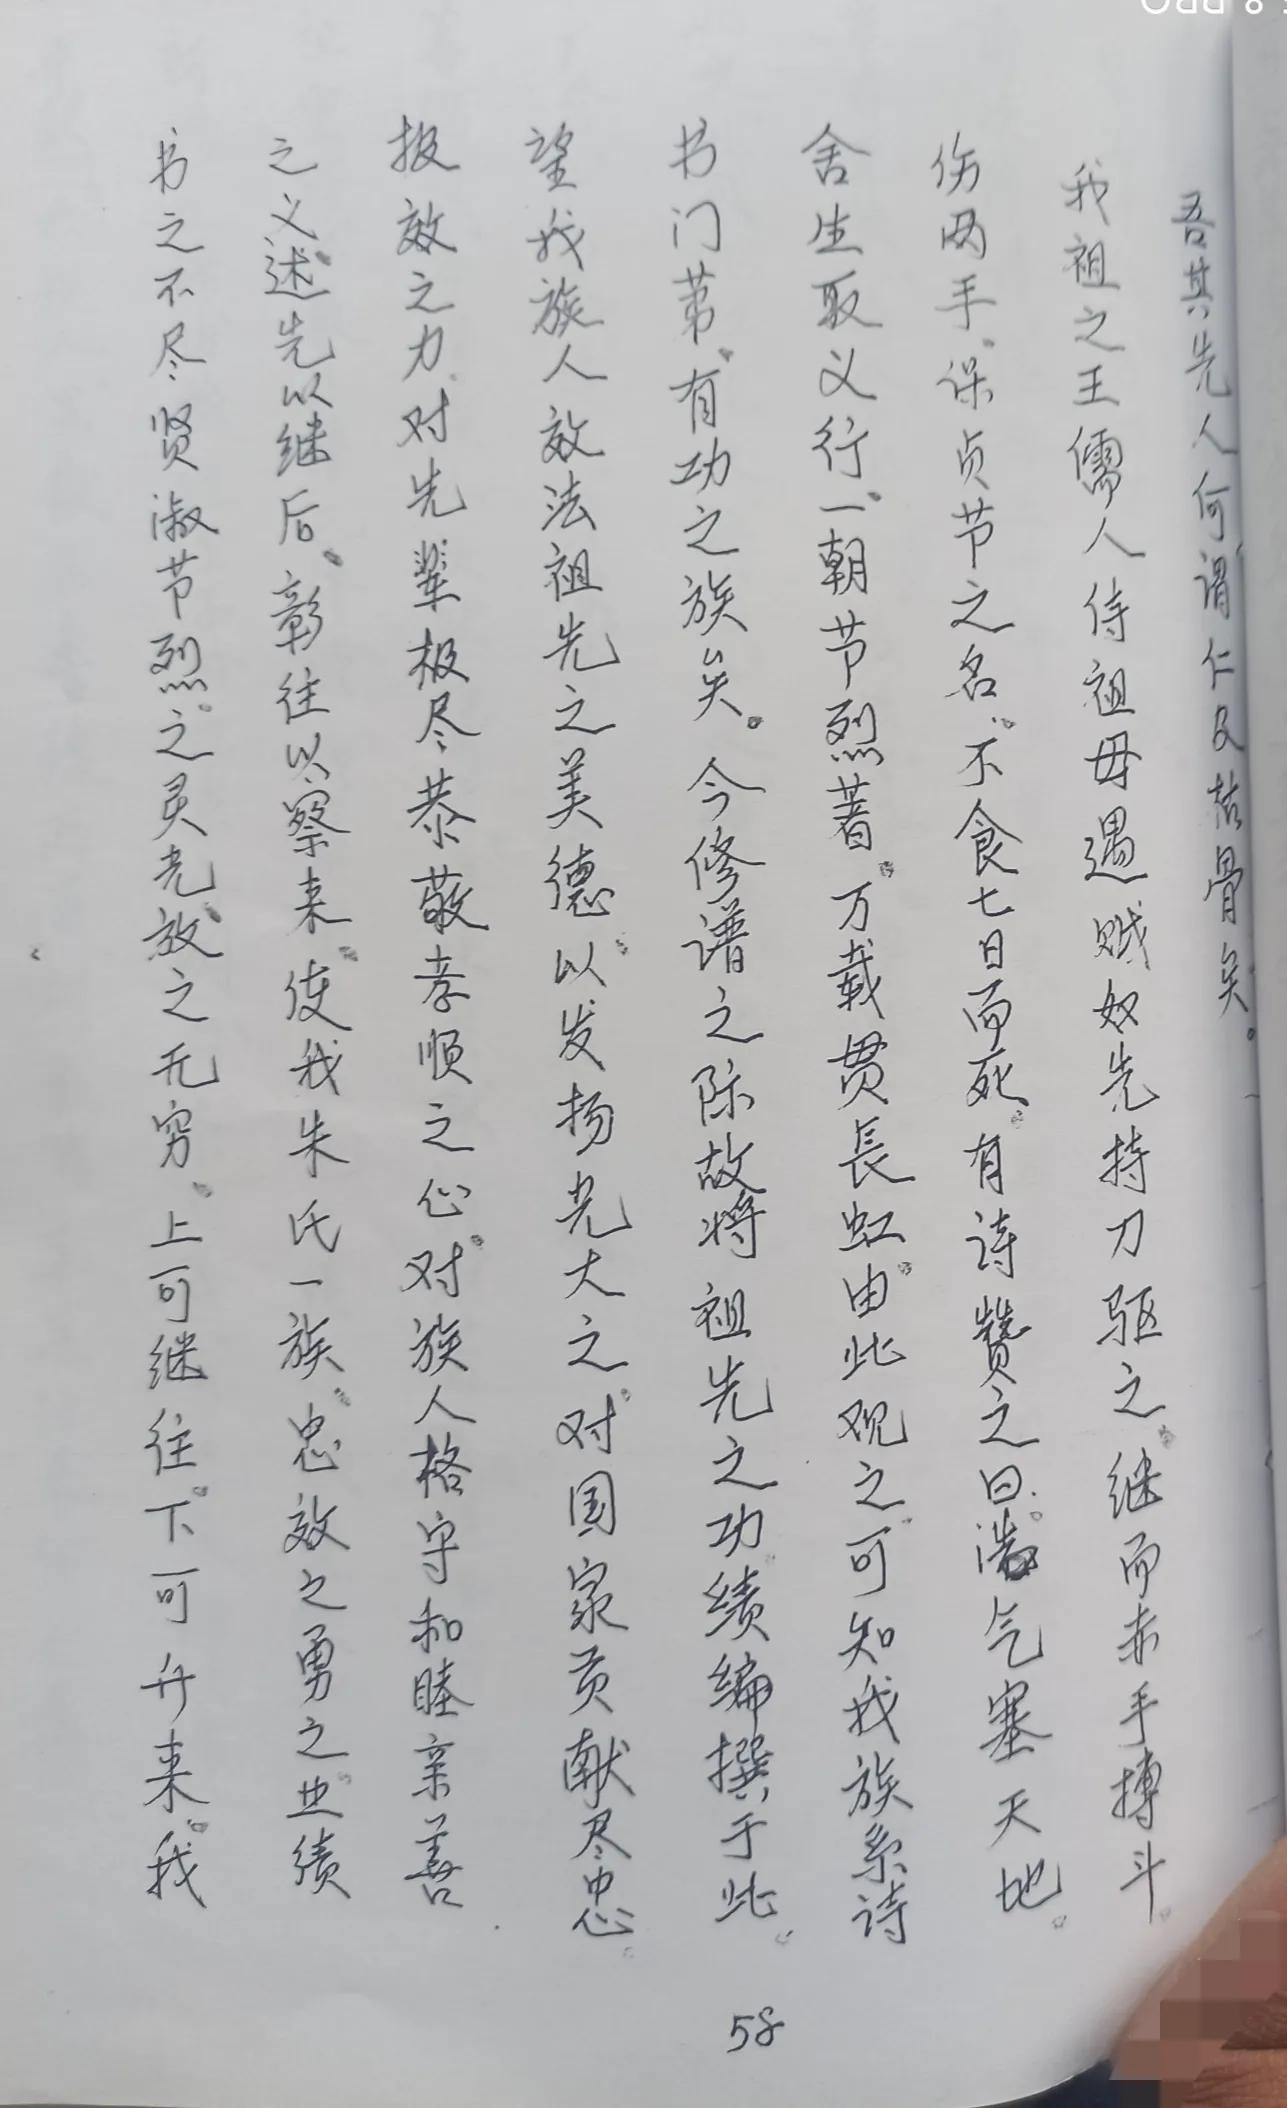 吾其先人何谓仁及枯骨矣。
我祖之王儒人侍祖母遇贼奴先持刀驱之。继而赤手搏斗。
伤两手。保贞节之名。不食七日而死。有诗赞之曰。浩气塞天地。
舍生取义行。一朝节烈著。万载贯長虹。由此观之。可知我族系诗
书门第。有功之族矣。今修谱之际故将祖先之功绩编撰于此。
望我族人效法祖先之美德。以发扬光大之。对国家贡献尽忠。
报效之力。对先辈极尽恭敬孝顺之心。对族人格守和睦亲善
之义。述先以继后。彰往以察来。使我朱氏一族。忠效之勇之业绩
书之不尽贤淑节烈。之灵光放之无穷。上可继往。下可升来。我
58